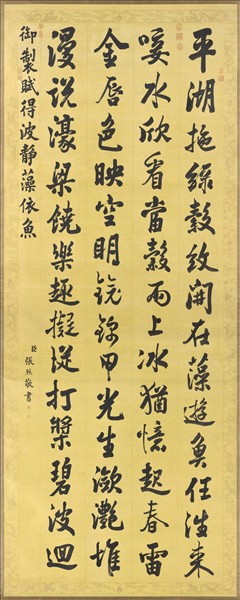 平湖拖綠縠紋開在藻遊魚任往来
唼水欣看當穀雨上冰猶憶起春雷
金唇色映空明鏡錦甲光生瀲灧堆
漫说濠梁饒樂趣擬從打槳碧波迴
御製賦得波靜藻依魚
臣張照敬書